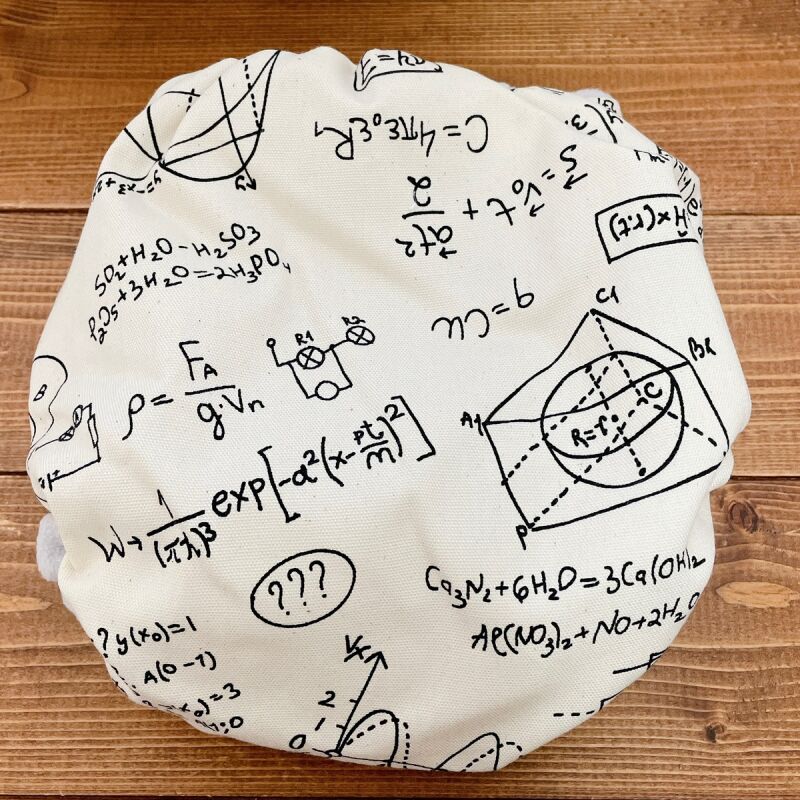 C=4πε₀εR₁
S=v₀t+at²/2
H×(r.t)
SO₂+H₂O-H₂SO3
P₂O₅+3H₂O=2H₃PO₄
q=Cu
R1
R2
C1
B
ρ=F_A/g·Vn
A1
B1
C
R=r
W→1/(πħ)³ exp[-a²(x-pt/m)²]
P
???
Ca₃N₂+6H₂O=3Ca(OH)₂
Al(NO₃)₂+NO+2H₂O
? y(x₀)=1
A(0-1)
(x₀)=3
2
1
0